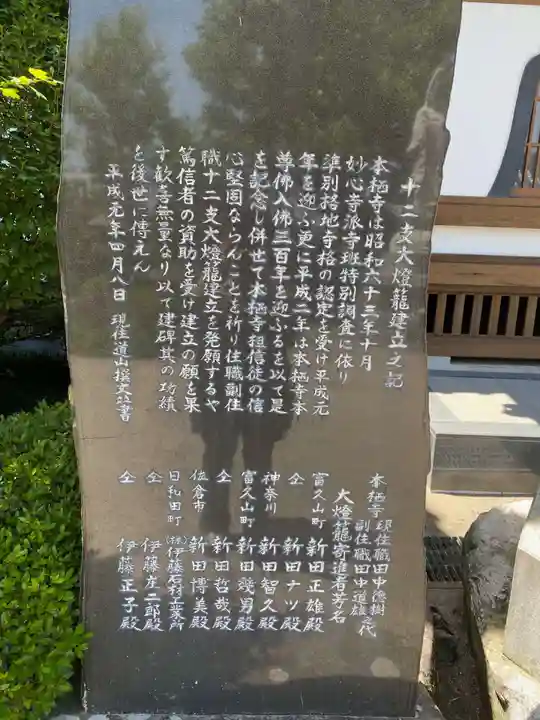 十二支大燈籠建立之記
本栖寺は昭和六十三年十月
妙心寺派寺班特別調査に依り
準別格地寺格の認定を受け平成元
年を迎ふ更に平成二年は本栖寺本
尊佛入佛三百年を迎ふるを以て是
を記念し併せて本栖寺担信徒の信
心堅固ならんことを祈り住職副住
職十二支大燈籠建立を発願するや
篤信者の資助を受け建立の願を果
す歓喜無量なり以て建碑其の功績
を後世に傳えん
平成元年四月八日 現住道山撰文並書
本栖寺 現住職田中徳樹
副住職田中道雄之代
大燈籠寄進者芳名
富久山町 新田正雄殿
仝 新田ナツ殿
神奈川 新田智久殿
富久山町 新田幾男殿
仝 新田哲哉殿
佐倉市 新田博美殿
日和田町 (株)伊藤石材工業所
仝 伊藤庄二郎殿
仝 伊藤正子殿